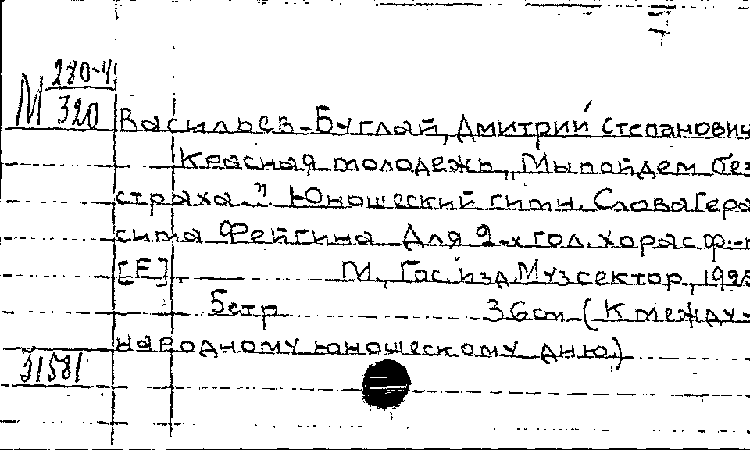 М 280-4
320
Васильев-Буглай, Дмитрий Степанович
Красная молодежь, "Мы пойдем без
страха." Юношеский гимн. Слова Гера-
сима Фейгина. Для 2-х гол. хора с ф.-п.
[F] М., Гос. изд. Музсектор, 1925
5 стр 36 cm (К между-
народному юношескому дню)
31581